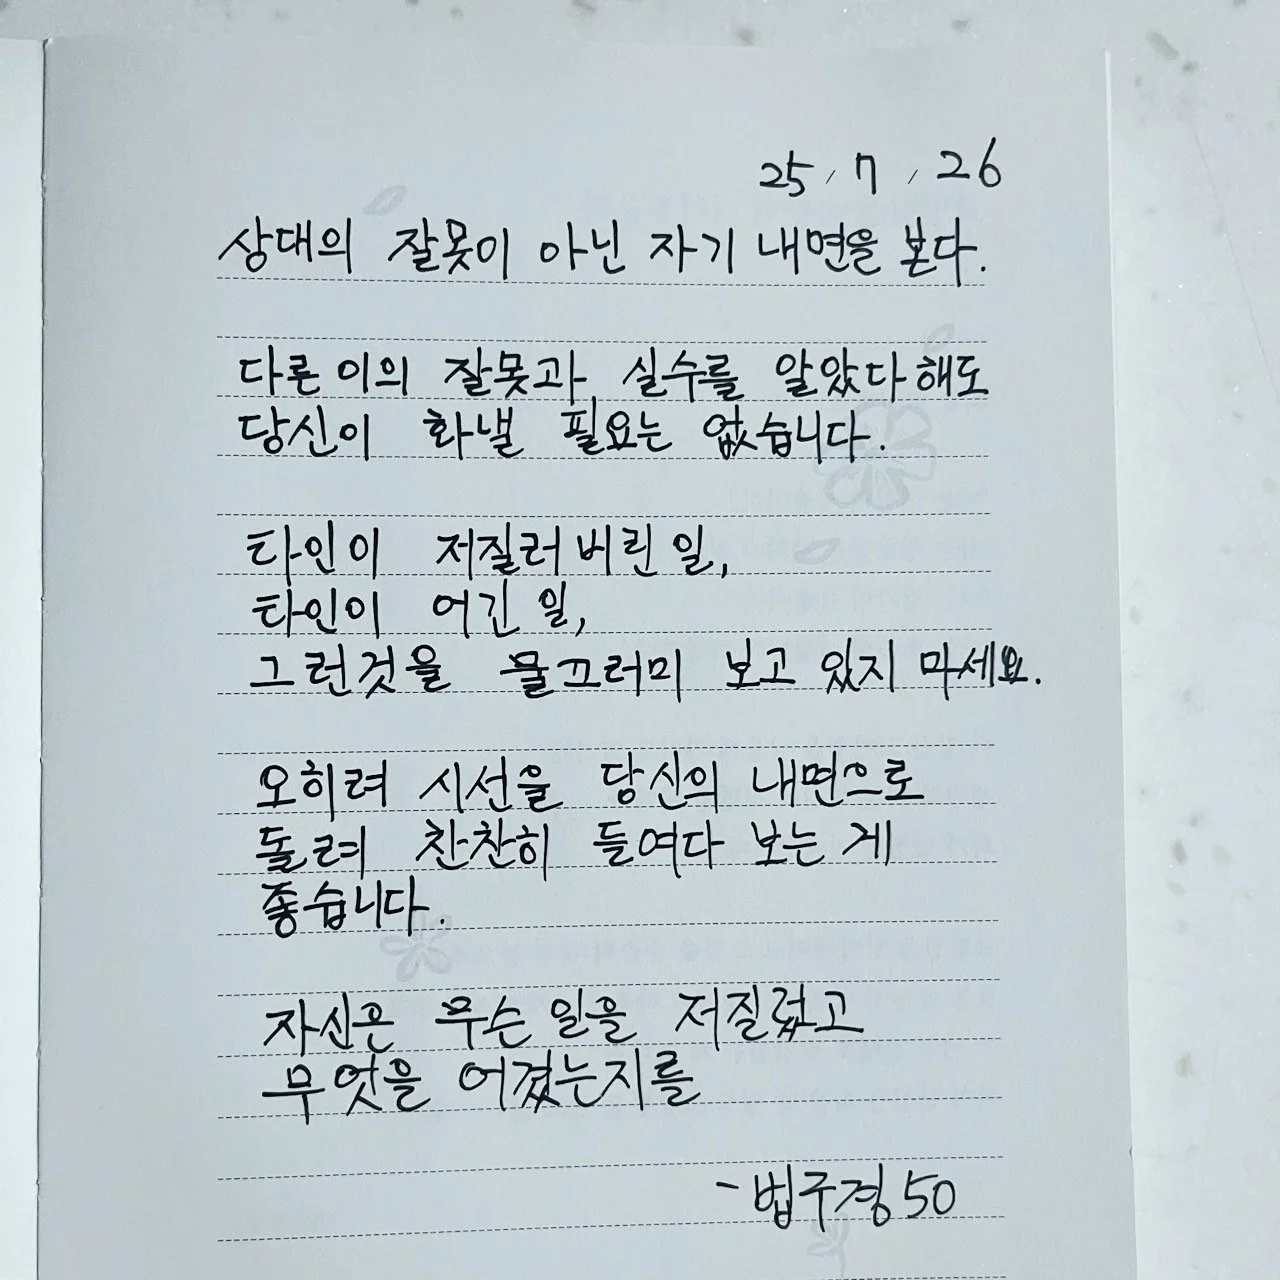 25, 7, 26
상대의 잘못이 아닌 자기 내면을 본다.
다른 이의 잘못과 실수를 알았다 해도
당신이 화낼 필요는 없습니다.
타인이 저질러 버린 일,
타인이 어긴 일,
그런것을 물끄러미 보고 있지 마세요.
오히려 시선을 당신의 내면으로
돌려 찬찬히 들여다 보는 게
좋습니다.
자신은 무슨 일을 저질렀고
무엇을 어겼는지를
- 법구경 50